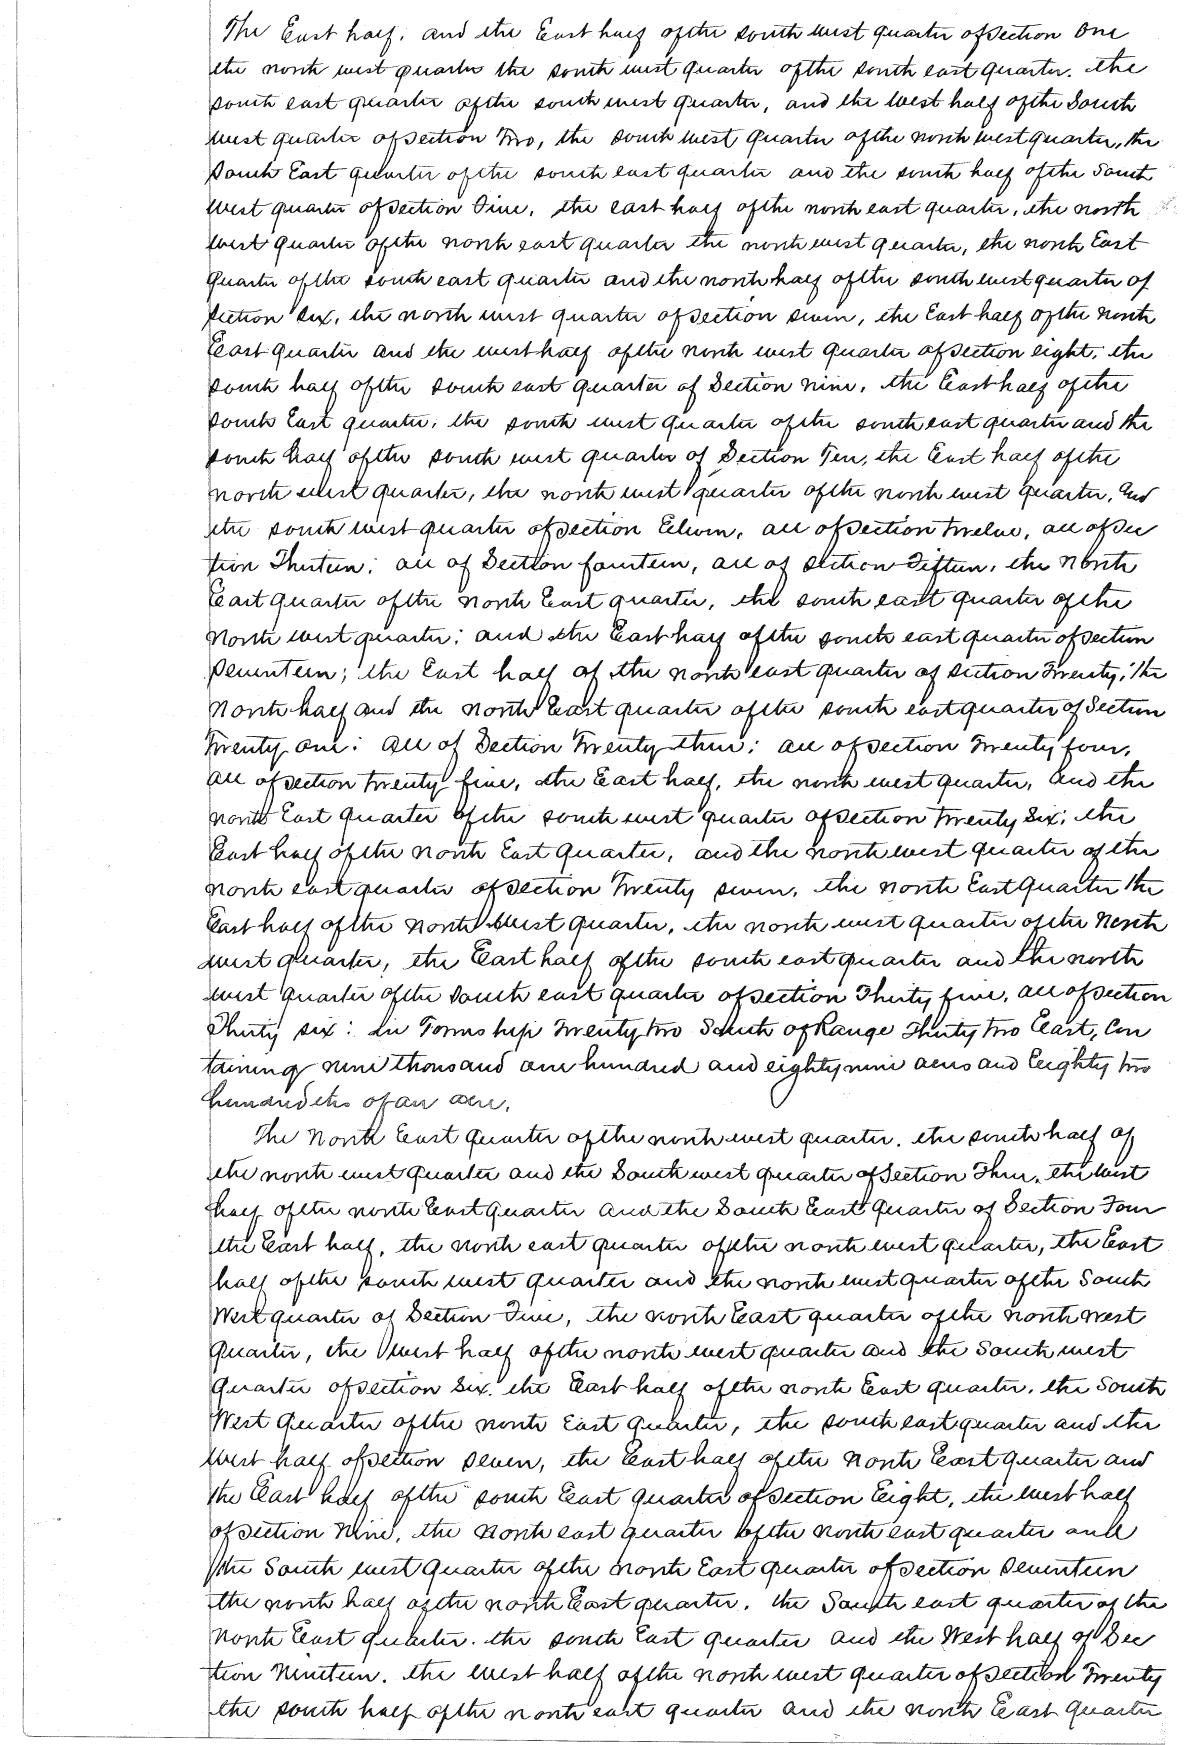 The East half, and the East half of the south west quarter of Section One
the north west quarter the south west quarter of the south east quarter. the
south east quarter of the south west quarter, and the West half of the South
west quarter of Section Two, the south west quarter of the north west quarter, the
South East quarter of the south east quarter and the south half of the South
West quarter of Section Five, the east half of the north east quarter, the north
west quarter of the north east quarter the north west quarter, the north East
quarter of the south east quarter and the north half of the south west quarter of
Section Six, the north west quarter of Section seven, the East half of the North
East quarter and the west half of the north west quarter of Section eight, the
south half of the south east quarter of Section nine, the East half of the
South East quarter, the south west quarter of the south east quarter and the
south half of the south west quarter of Section Ten, the East half of the
north west quarter, the north west quarter of the north west quarter, and
the south west quarter of Section Eleven, all of Section Twelve, all of Sec
tion Thirteen; all of Section fourteen, all of Section Fifteen, the North
East quarter of the North East quarter, the south east quarter of the
North west quarter; and the East half of the south east quarter of Section
Seventeen; the East half of the north east quarter of Section Twenty; the
North half and the North East quarter of the south east quarter of Section
Twenty one; all of Section Twenty three; all of Section Twenty four,
all of Section twenty five, the East half, the north west quarter, and the
north East quarter of the south west quarter of Section Twenty Six; the
East half of the North East quarter, and the north west quarter of the
north east quarter of Section Twenty seven, the north East quarter the
East half of the North West quarter, the north west quarter of the North
west quarter, the East half of the south east quarter and the north
west quarter of the South east quarter of Section Thirty five, all of Section
Thirty six: in Township Twenty two South of Range Thirty two East, Con
taining nine thousand one hundred and eighty nine acres and Eighty two
hundredths of an acre.
The North East quarter of the north west quarter. the south half of
the north west quarter and the South west quarter of Section Three, the West
half of the north East quarter and the South East quarter of Section Four
the East half, the north east quarter of the north west quarter, the East
half of the south west quarter and the north west quarter of the South
West quarter of Section Five, the north East quarter of the north West
quarter, the west half of the north west quarter and the South west
quarter of Section Six. the East half of the north East quarter, the South
West quarter of the north East quarter, the south east quarter and the
West half of Section Seven, the East half of the North East quarter and
the East half of the south East quarter of Section Eight, the west half
of Section Nine, the North east quarter of the north east quarter and
the South west quarter of the north East quarter of Section Seventeen
the north half of the north East quarter. the South east quarter of the
North East quarter. the south East quarter and the West half of Sec
tion Nineteen. the west half of the north west quarter of Section Twenty
the south half of the north east quarter and the north East quarter